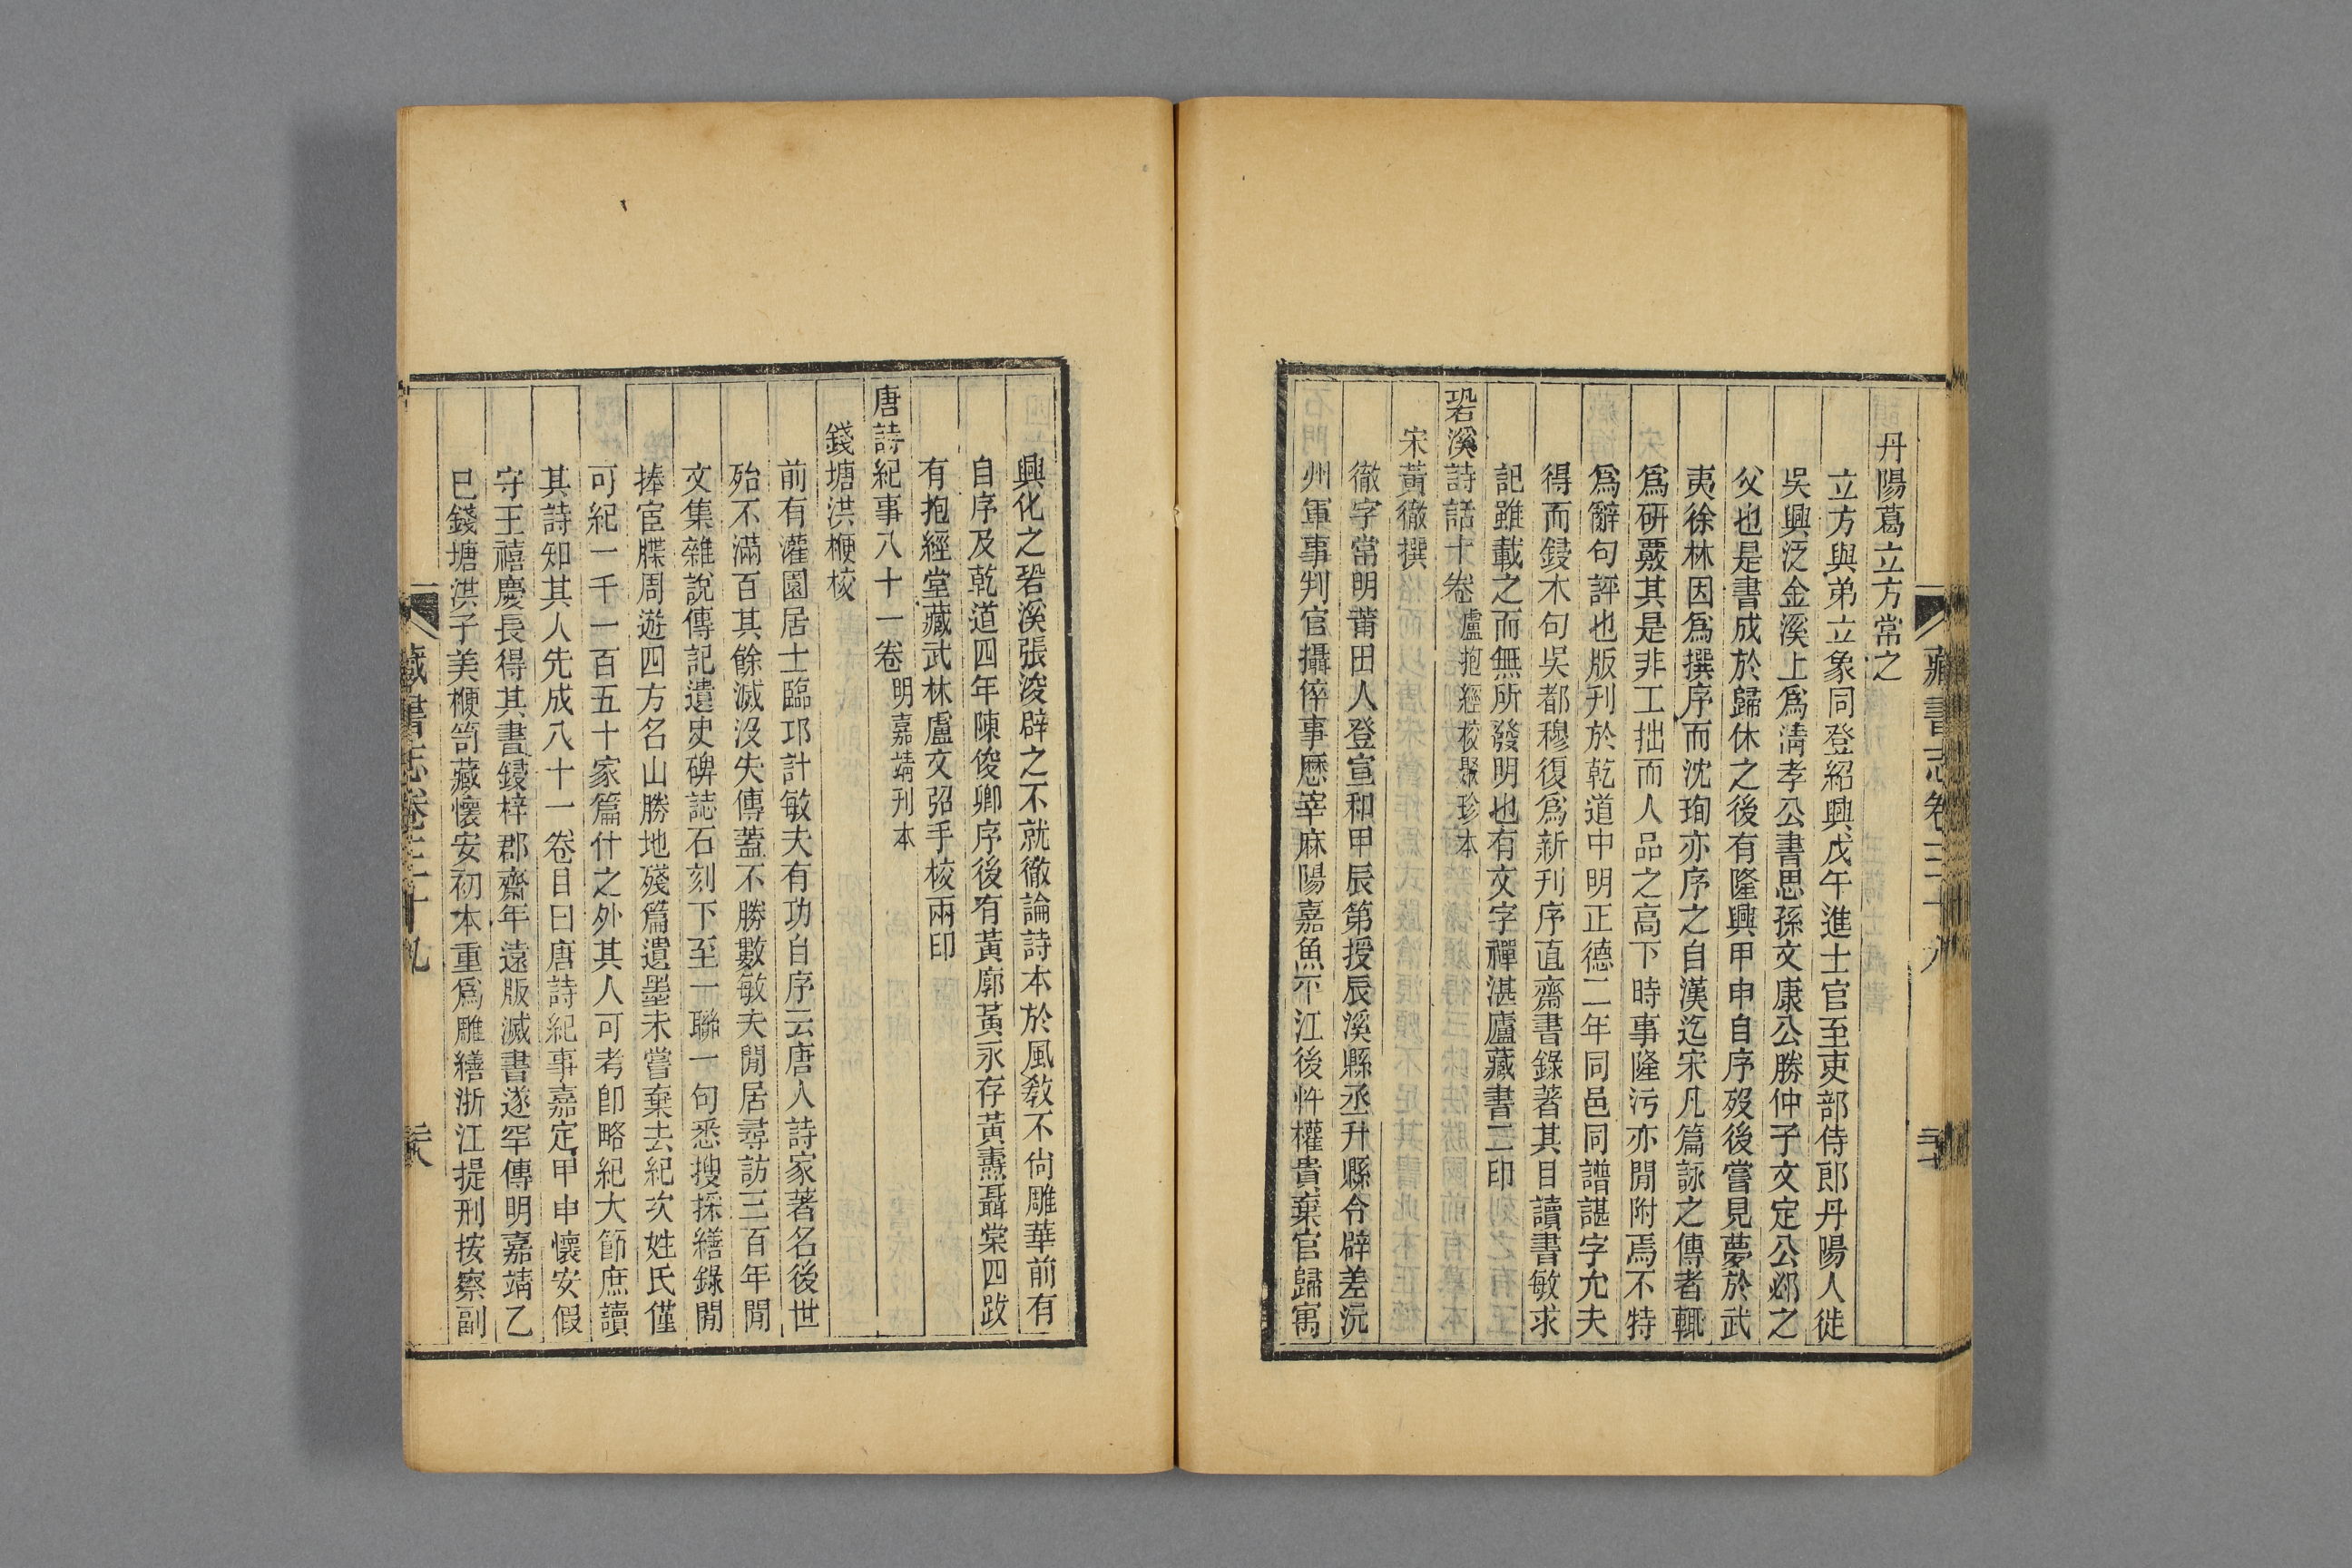 藏書志卷三十九
丹陽葛立方常之
立方與弟立象同登紹興戊午進士官至吏部侍郎丹陽人徙
吳興泛金溪上爲清孝公書思孫文康公勝仲子文定公邲之
父也是書成於歸休之後有隆興甲申自序歿後嘗見夢於武
夷徐林因爲撰序而沈珣亦序之自漢迄宋凡篇詠之傳者輒
爲硏覈其是非工拙而人品之高下時事隆污亦閒附焉不特
爲辭句評也版刋於乾道中明正德二年同邑同譜諶字允夫
得而鋟木句吳都穆復爲新刋序直齋書錄著其目讀書敏求
記雖載之而無所發明也有文字禪湛廬藏書二印
䂬溪詩話十卷 盧抱經校聚珍本
宋黃徹撰
徹字常明莆田人登宣和甲辰第授辰溪縣丞升縣令辟差沅
州軍事判官攝倅事歷宰麻陽嘉魚平江後忤權貴棄官歸寓
興化之䂬溪張浚辟之不就徹論詩本於風敎不尙雕華前有
自序及乾道四年陳俊卿序後有黃廓黃永存黃燾聶棠四跋
有抱經堂藏武林盧文弨手校兩印
唐詩紀事八十一卷 明嘉靖刋本
錢塘洪楩校
前有灌園居士臨邛計敏夫有功自序云唐人詩家著名後世
殆不滿百其餘滅沒失傳蓋不勝數敏夫閒居尋訪三百年閒
文集雜說傳記遺史碑誌石刻下至一聯一句悉搜採繕錄閒
捧宦牒周遊四方名山勝地殘篇遺墨未嘗棄去紀次姓氏僅
可紀一千一百五十家篇什之外其人可考卽略紀大節庶讀
其詩知其人先成八十一卷目曰唐詩紀事嘉定甲申懷安假
守王禧慶長得其書鋟梓郡齋年遠版滅書遂罕傳明嘉靖乙
巳錢塘洪子美楩笥藏懷安初本重爲雕繕浙江提刑按察副
藏書志卷三十九 三六